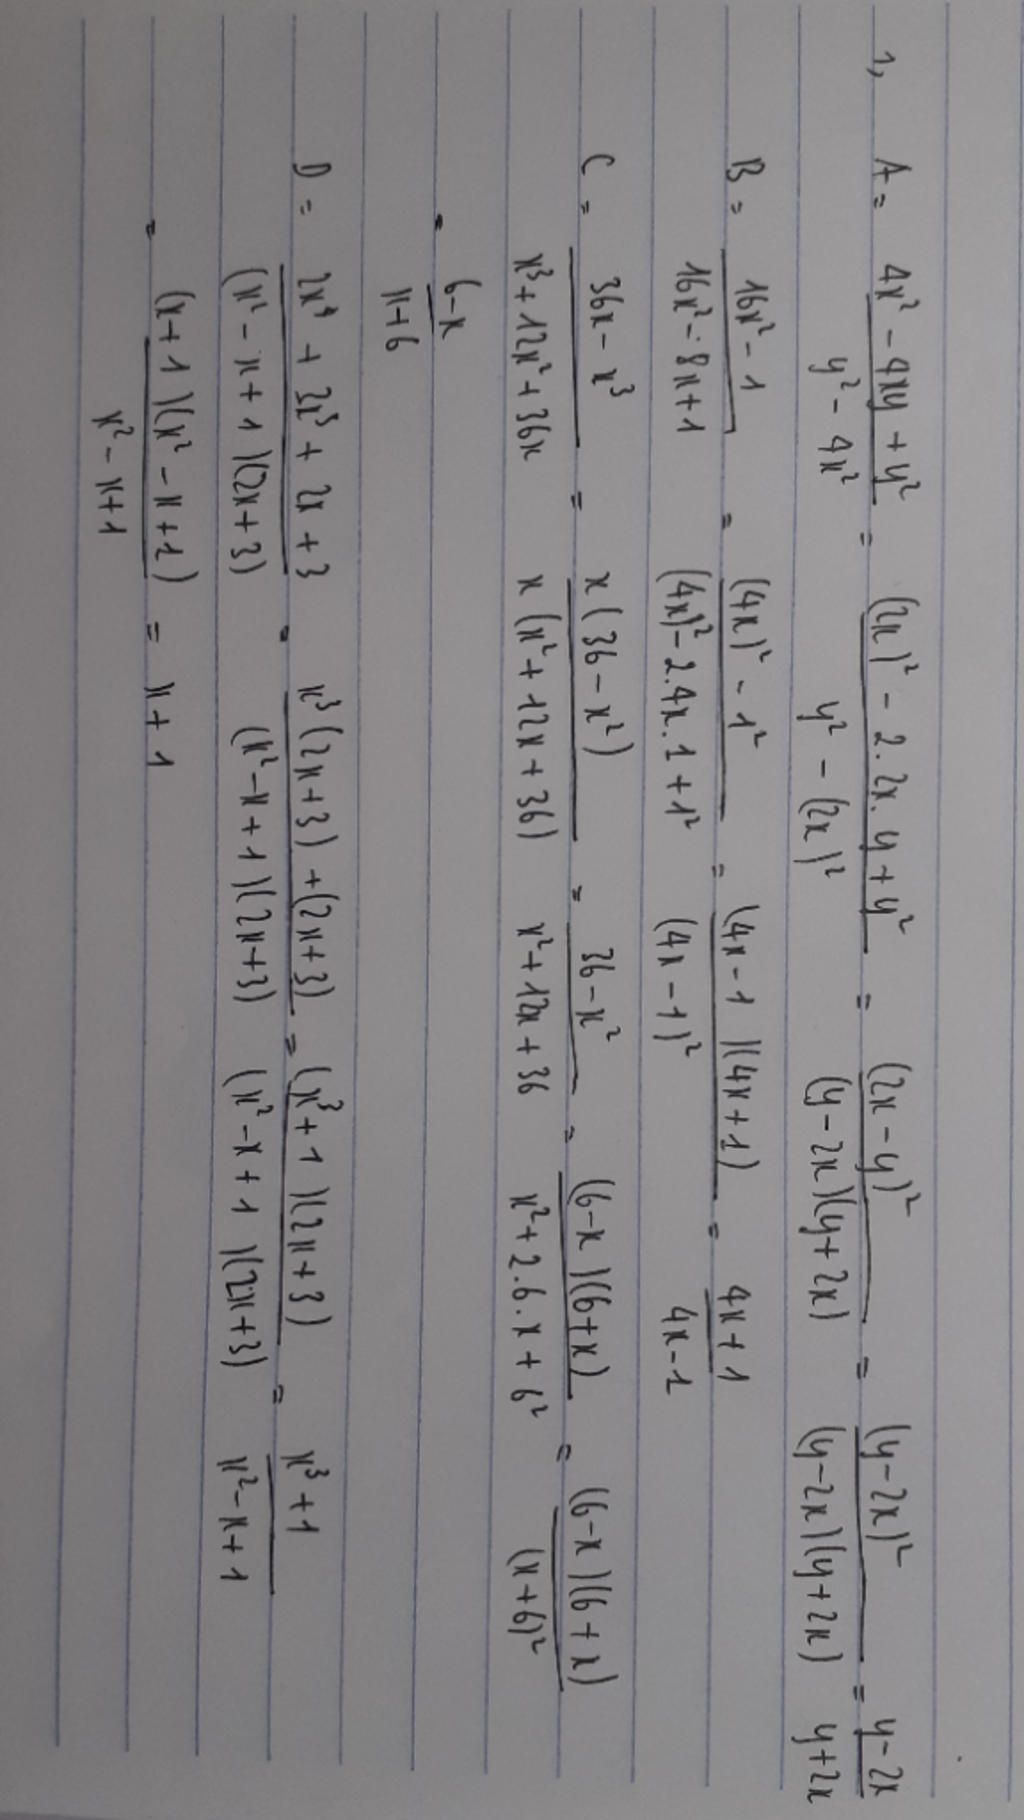 1, A = (4x² - 4xy + y²)/(y² - 4x²) = ((2x)² - 2.2x.y + y²)/(y² - (2x)²) = (2x - y)²/((y - 2x)(y + 2x)) = (y - 2x)²/((y - 2x)(y + 2x)) = (y - 2x)/(y + 2x)
B = (16x² - 1)/(16x² - 8x + 1) = ((4x)² - 1²)/((4x)² - 2.4x.1 + 1²) = ((4x - 1)(4x + 1))/(4x - 1)² = (4x + 1)/(4x - 1)
C = (36x - x³)/(x³ + 12x² + 36x) = (x(36 - x²))/(x(x² + 12x + 36)) = (36 - x²)/(x² + 12x + 36) = ((6 - x)(6 + x))/(x² + 2.6.x + 6²) = ((6 - x)(6 + x))/(x + 6)²
= (6 - x)/(x + 6)
D = (2x⁴ + 3x³ + 2x + 3)/((x² - x + 1)(2x + 3)) = (x³(2x + 3) + (2x + 3))/((x² - x + 1)(2x + 3)) = ((x³ + 1)(2x + 3))/((x² - x + 1)(2x + 3)) = (x³ + 1)/(x² - x + 1)
= ((x + 1)(x² - x + 1))/(x² - x + 1) = x + 1